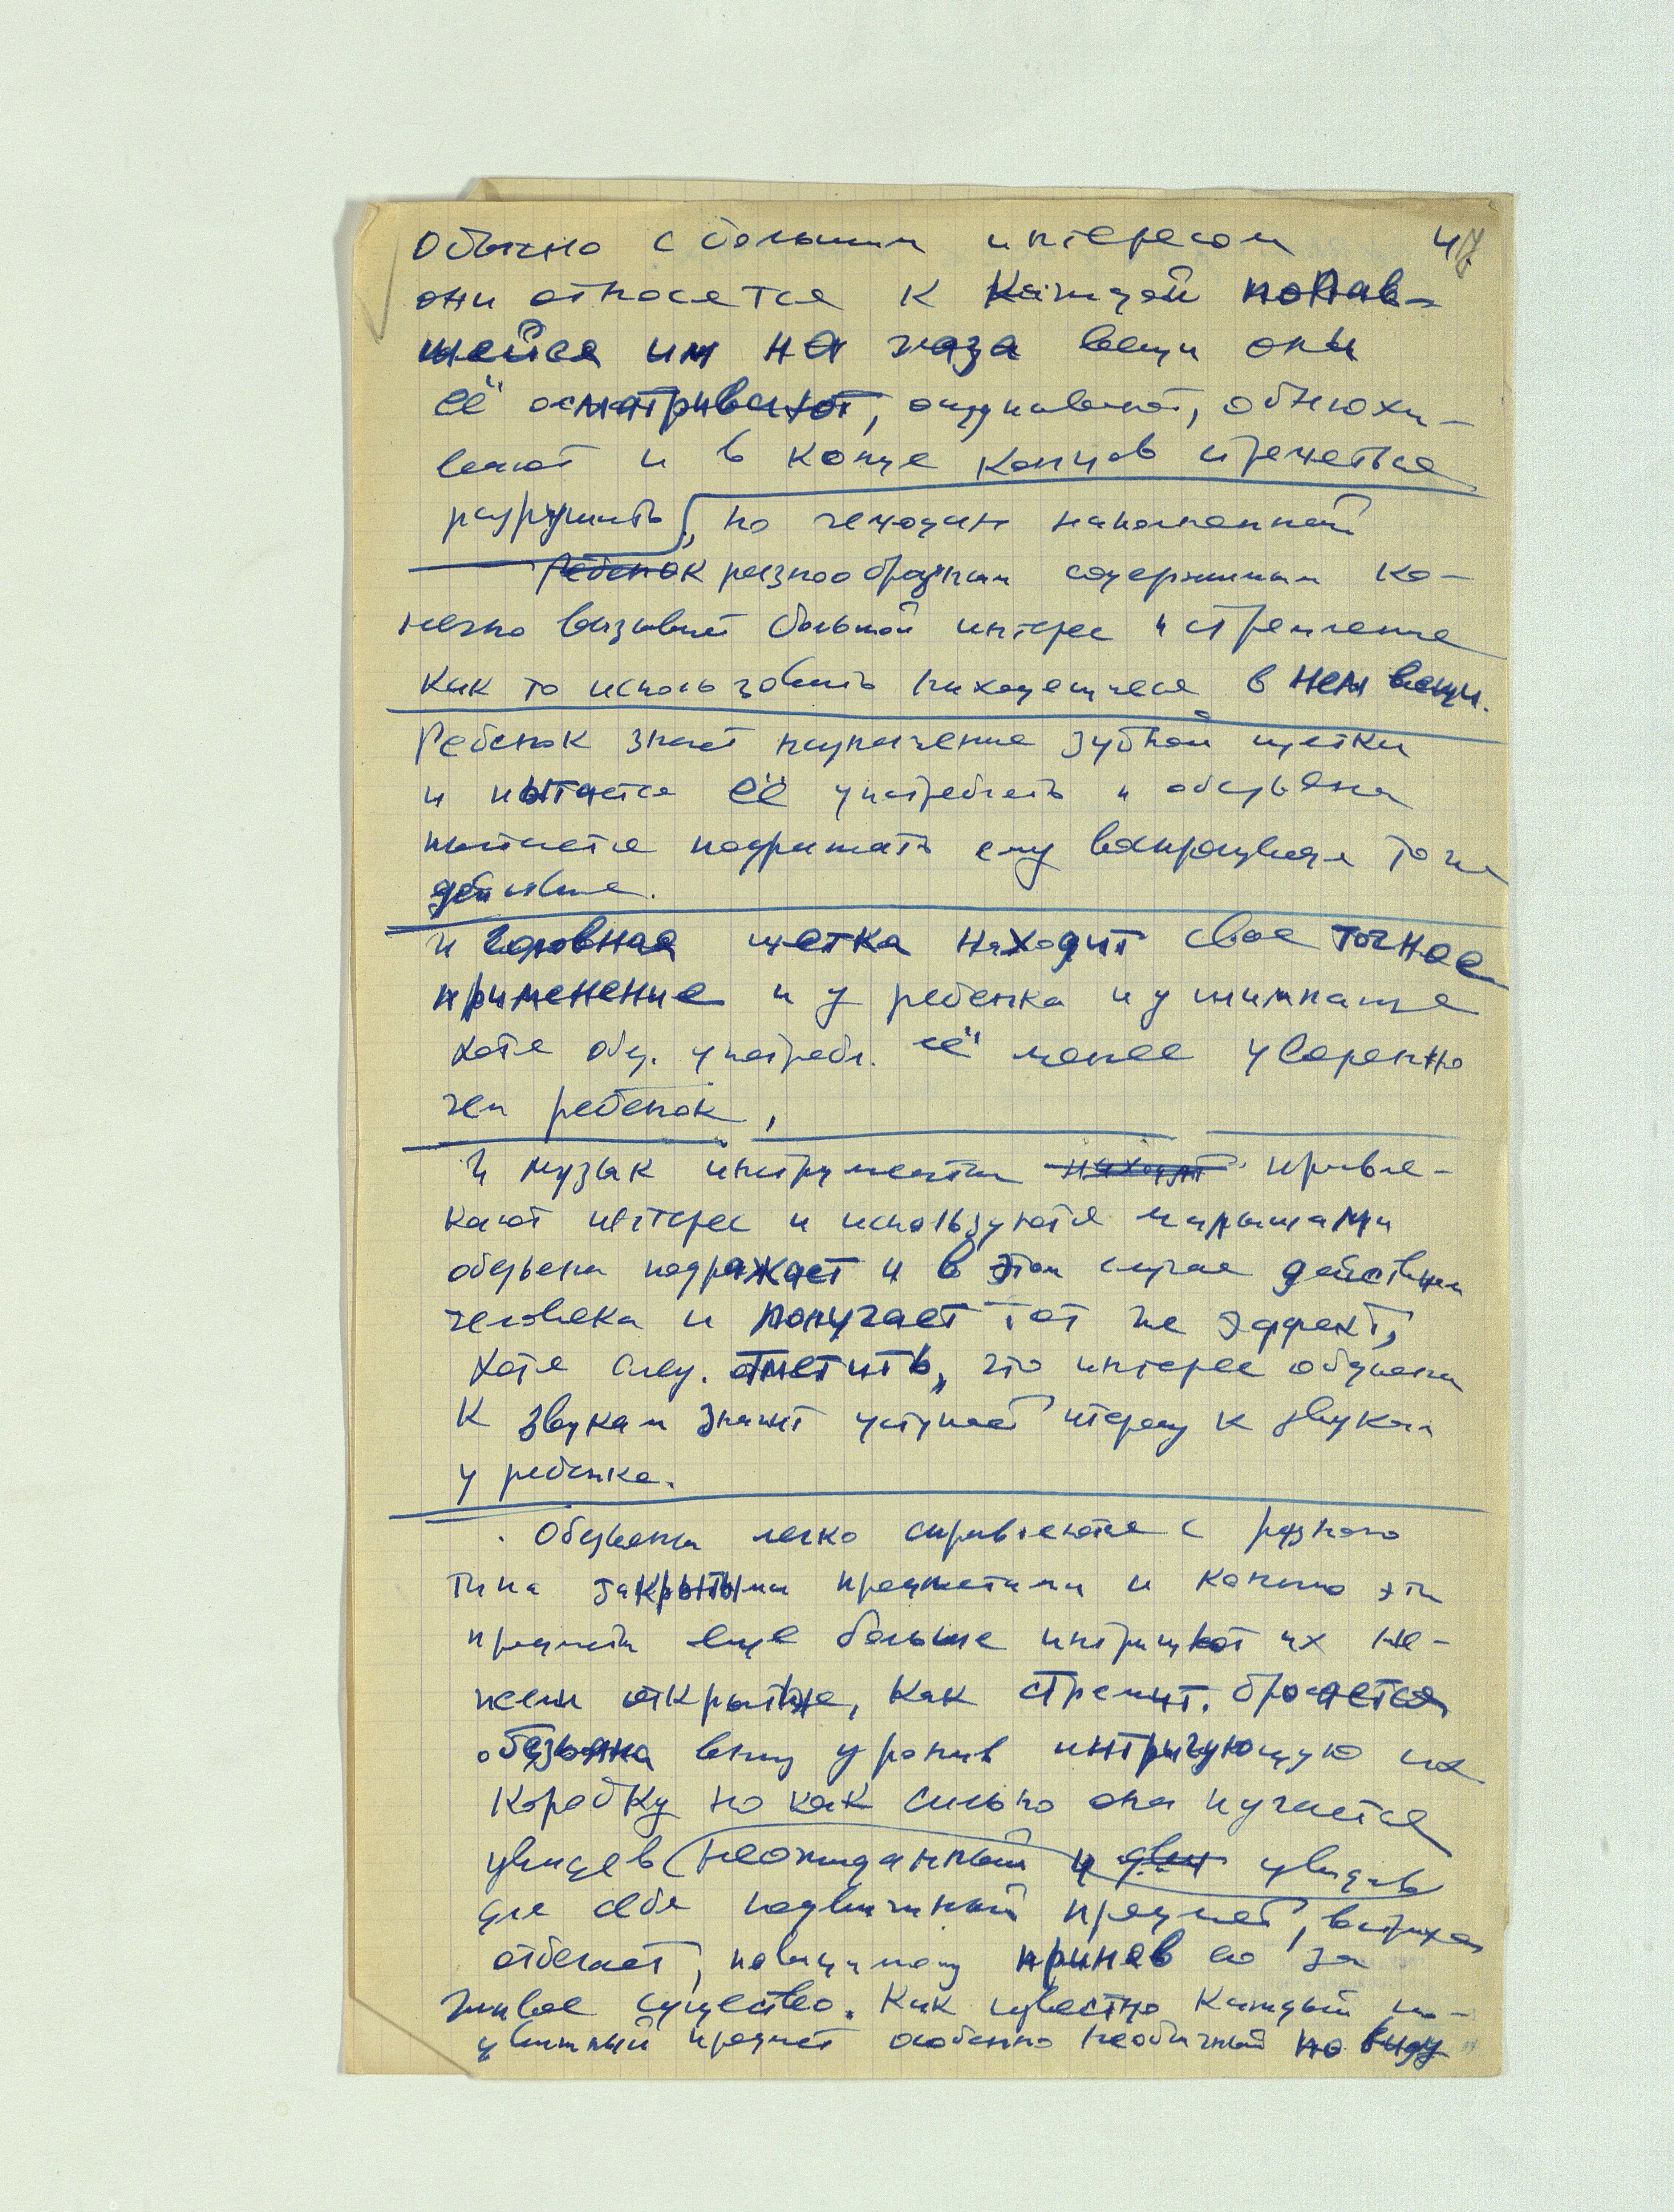 Обычно с большим интересом 47
они относятся к каждой попав-
шейся им на глаза вещи они
её осматривают, ощупывают, обнюхи-
вают и в конце концов стремятся
разрушить, но чемодан наполненный
Ребенок разнообразным содержимым ко-
нечно вызывает большой интерес и стремление
как то использовать находящиеся в нем вещи.
Ребенок знает назначение зубной щетки
и пытается её употреблять и обезьяна
пытается подражать ему воспроизводя то же
действие.
и головная щетка находит свое точное
применение и у ребенка и у шимпанзе
хотя обез. употребл. её менее уверенно
чем ребенок,
И музык инструменты находят привле-
кают интерес и используются малышами
обезьяна подражает и в этом случае действиям
человека и получает тот же эффект,
хотя след. отметить, что интерес обезьяны
к звукам значит уступает интересу к звукам
у ребенка.
Обезьяны легко справляются с разного
типа закрытыми предметами и конечно эти
предметы еще больше интригуют их не-
жели открытые, как стремит. бросается
обезьяна вниз уронив интригующую их
коробку но как сильно она пугается
увидев неожиданный и увидев
для себя подвижный предмет,
отбегает, повидимому приняв его за
живое существо. Как известно каждый по-
движный предмет особенно необычный по виду